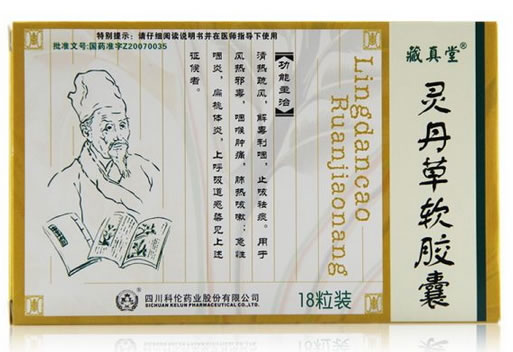 特别提示：请仔细阅读说明书并在医师指导下使用
批准文号:国药准字Z20070035
藏真堂®
灵丹草软胶囊
Lingdancao
Ruanjiaonang
【功能主治】
清热疏风，解毒利咽，止咳祛痰。用于
风热邪毒，咽喉肿痛，肺热咳嗽；急性
咽炎，扁桃体炎，上呼吸道感染见上述
证候者。
18粒装
四川科伦药业股份有限公司
SICHUAN KELUN PHARMACEUTICAL CO.,LTD.